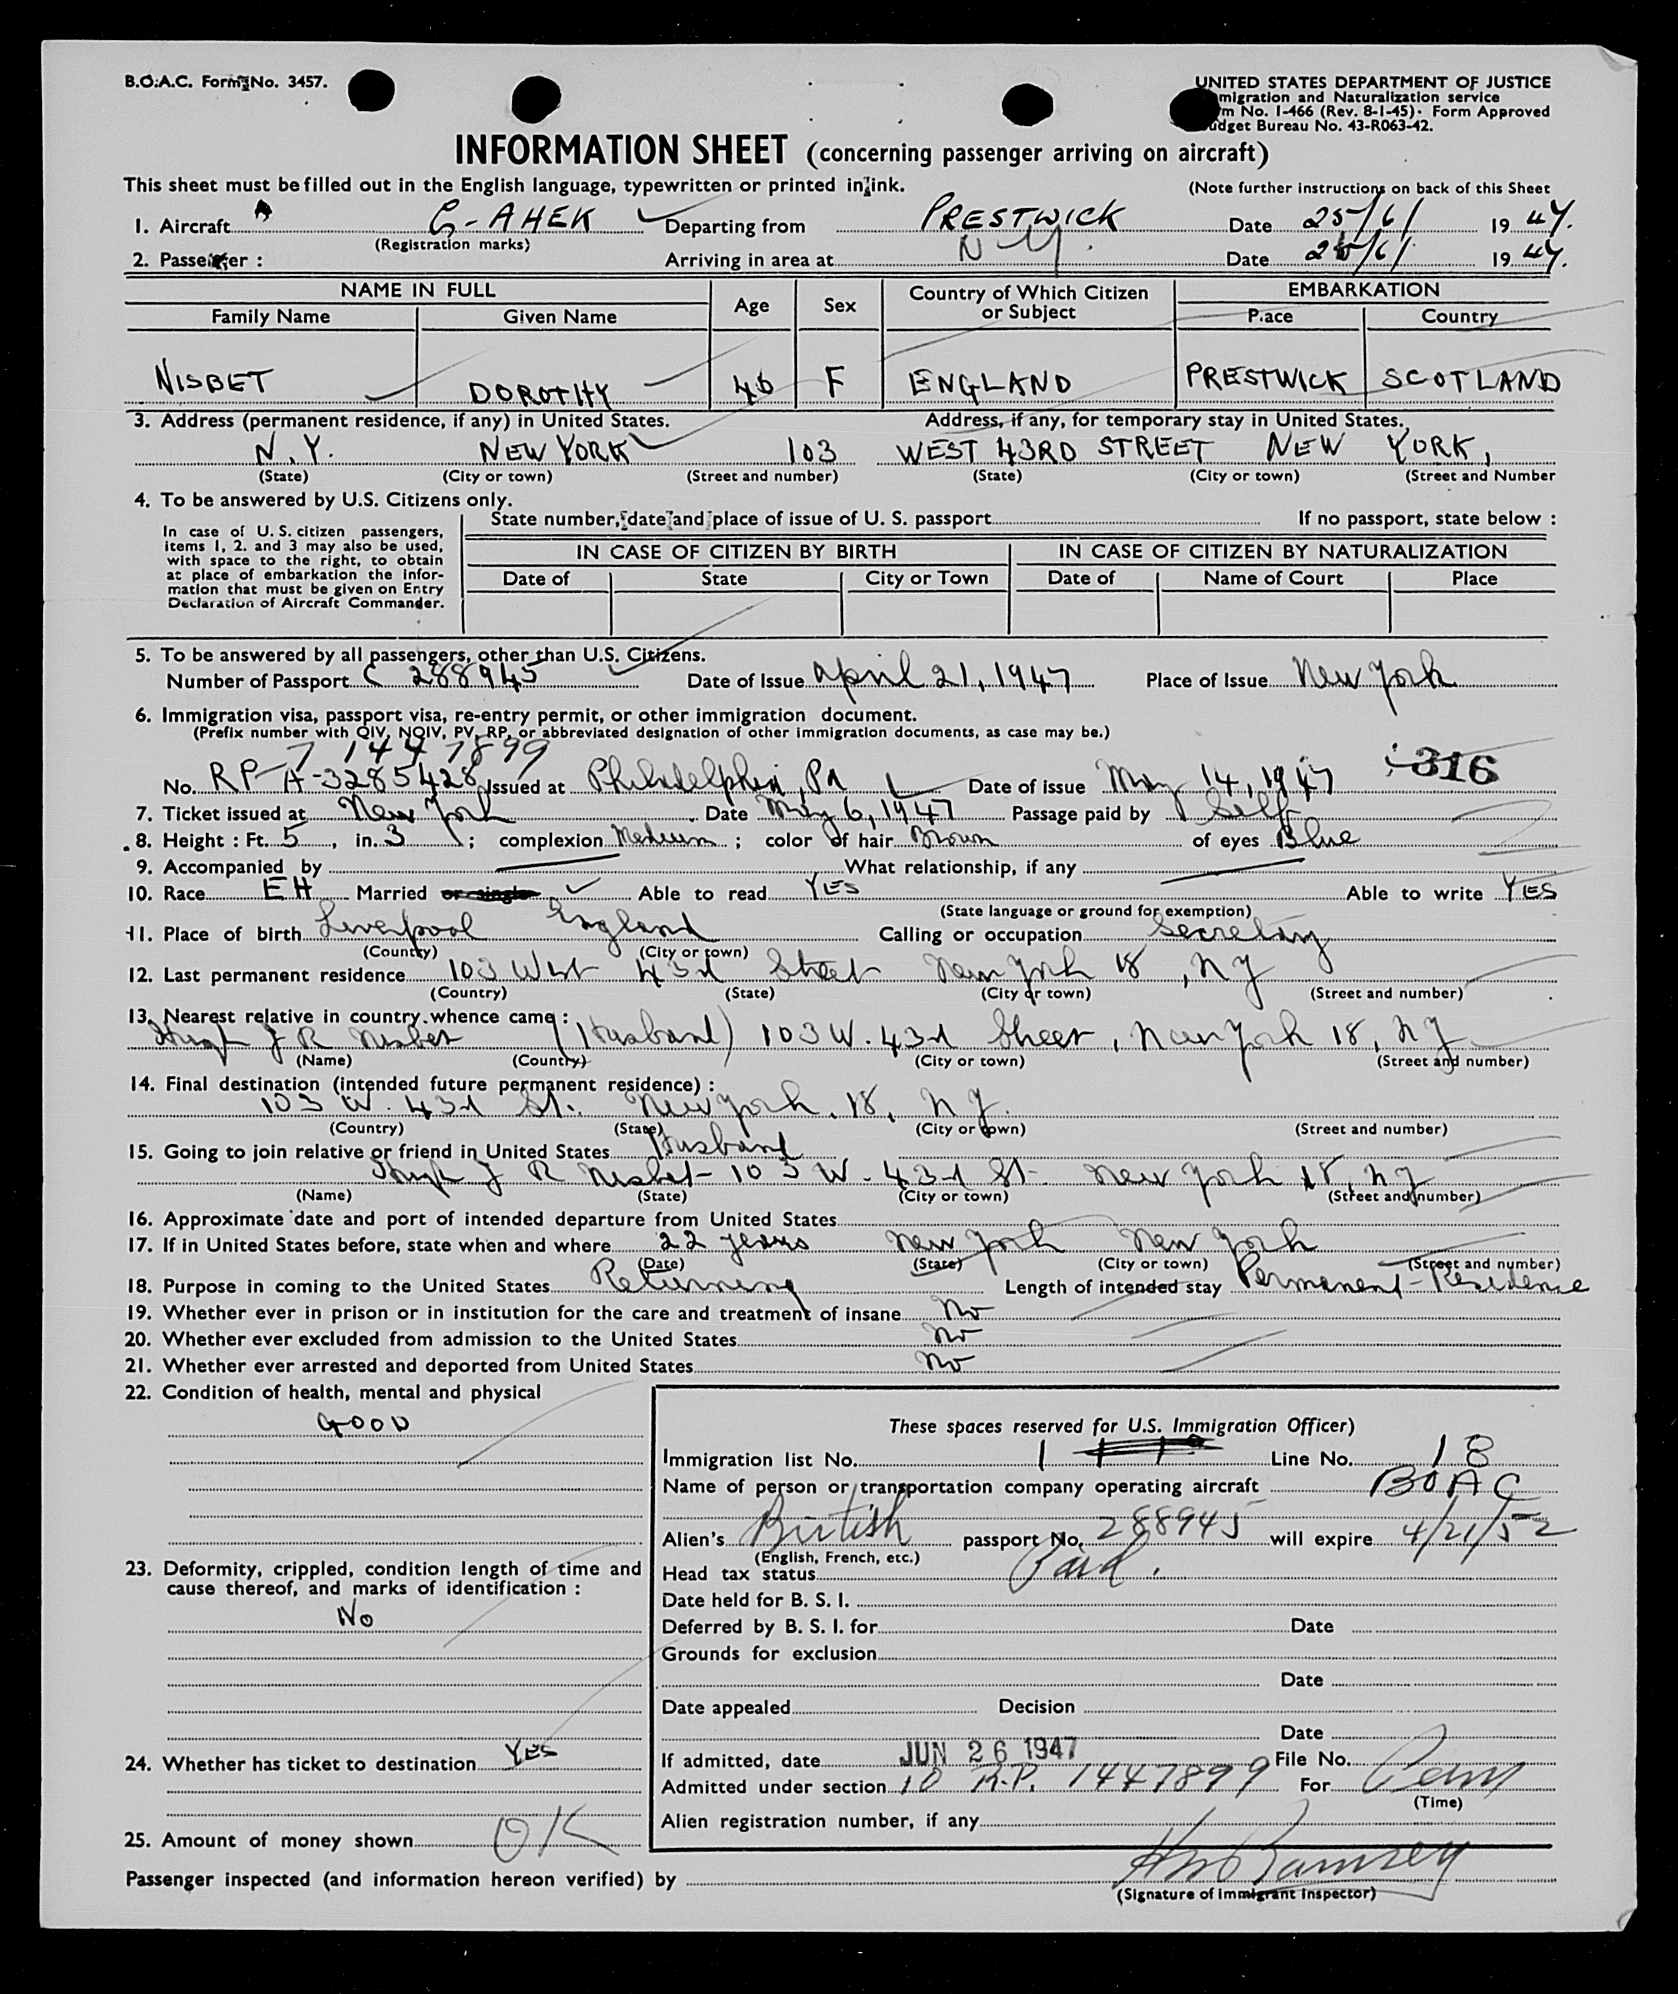 B.O.A.C. Form No. 3457.
UNITED STATES DEPARTMENT OF JUSTICE
migration and Naturalization service
m No. I-466 (Rev. 8-1-45). Form Approved
udget Bureau No. 43-R063-42.
INFORMATION SHEET (concerning passenger arriving on aircraft)
This sheet must be filled out in the English language, typewritten or printed in ink.
(Note further instructions on back of this Sheet
1. Aircraft G-AHEK Departing from PRESTWICK Date 25/6/ 1947.
(Registration marks)
2. Passenger : Arriving in area at N Y. Date 26/6/ 1947.
NAME IN FULL Age Sex Country of Which Citizen or Subject EMBARKATION
Family Name Given Name Place Country
NISBET DOROTHY 46 F ENGLAND PRESTWICK SCOTLAND
3. Address (permanent residence, if any) in United States. Address, if any, for temporary stay in United States.
N.Y. NEW YORK 103 WEST 43RD STREET NEW YORK,
(State) (City or town) (Street and number) (State) (City or town) (Street and Number
4. To be answered by U.S. Citizens only.
State number, date and place of issue of U. S. passport If no passport, state below :
In case of U. S. citizen passengers,
items 1, 2. and 3 may also be used,
with space to the right, to obtain
at place of embarkation the infor-
mation that must be given on Entry
Declaration of Aircraft Commander.
IN CASE OF CITIZEN BY BIRTH IN CASE OF CITIZEN BY NATURALIZATION
Date of State City or Town Date of Name of Court Place
5. To be answered by all passengers, other than U.S. Citizens.
Number of Passport C 288945 Date of Issue April 21, 1947 Place of Issue New York
6. Immigration visa, passport visa, re-entry permit, or other immigration document.
(Prefix number with QIV, NQIV, PV, RP, or abbreviated designation of other immigration documents, as case may be.)
1447899
No. RP-A-3285428 Issued at Philadelphia, Pa Date of issue May 14, 1947 316
7. Ticket issued at New York Date May 6, 1947 Passage paid by Self
8. Height : Ft. 5, in. 3 ; complexion Medium ; color of hair Brown of eyes Blue
9. Accompanied by What relationship, if any
10. Race EH Married or single Able to read YES Able to write YES
(State language or ground for exemption)
11. Place of birth Liverpool England Calling or occupation Secretary
(Country) (City or town)
12. Last permanent residence 103 West 43rd Street New York 18, NY
(Country) (State) (City or town) (Street and number)
13. Nearest relative in country whence came :
Hugh J R Nisbet (Husband) 103 W. 43rd Street, New York 18, NY
(Name) (Country) (City or town) (Street and number)
14. Final destination (intended future permanent residence) :
103 W. 43rd St. New York, 18, NY.
(Country) (State) (City or town) (Street and number)
15. Going to join relative or friend in United States Husband
Hugh J R Nisbet - 103 W. 43rd St - New York 18, NY
(Name) (State) (City or town) (Street and number)
16. Approximate date and port of intended departure from United States
17. If in United States before, state when and where 22 years New York New York
(Date) (State) (City or town) (Street and number)
18. Purpose in coming to the United States Returning Length of intended stay Permanent-Residence
19. Whether ever in prison or in institution for the care and treatment of insane No
20. Whether ever excluded from admission to the United States No
21. Whether ever arrested and deported from United States No
22. Condition of health, mental and physical
GOOD
These spaces reserved for U.S. Immigration Officer)
Immigration list No. 1 Line No. 18
Name of person or transportation company operating aircraft BOAC
Alien's British passport No. 288945 will expire 4/21/52
(English, French, etc.)
23. Deformity, crippled, condition length of time and
cause thereof, and marks of identification :
No
Head tax status Paid.
Date held for B. S. I.
Deferred by B. S. I. for Date
Grounds for exclusion
Date
Date appealed Decision
Date
24. Whether has ticket to destination YES
If admitted, date JUN 26 1947 File No.
Admitted under section 10 R.P. 1447899 For Perm
(Time)
Alien registration number, if any
25. Amount of money shown OK
Passenger inspected (and information hereon verified) by Ramsey
(Signature of Immigrant Inspector)